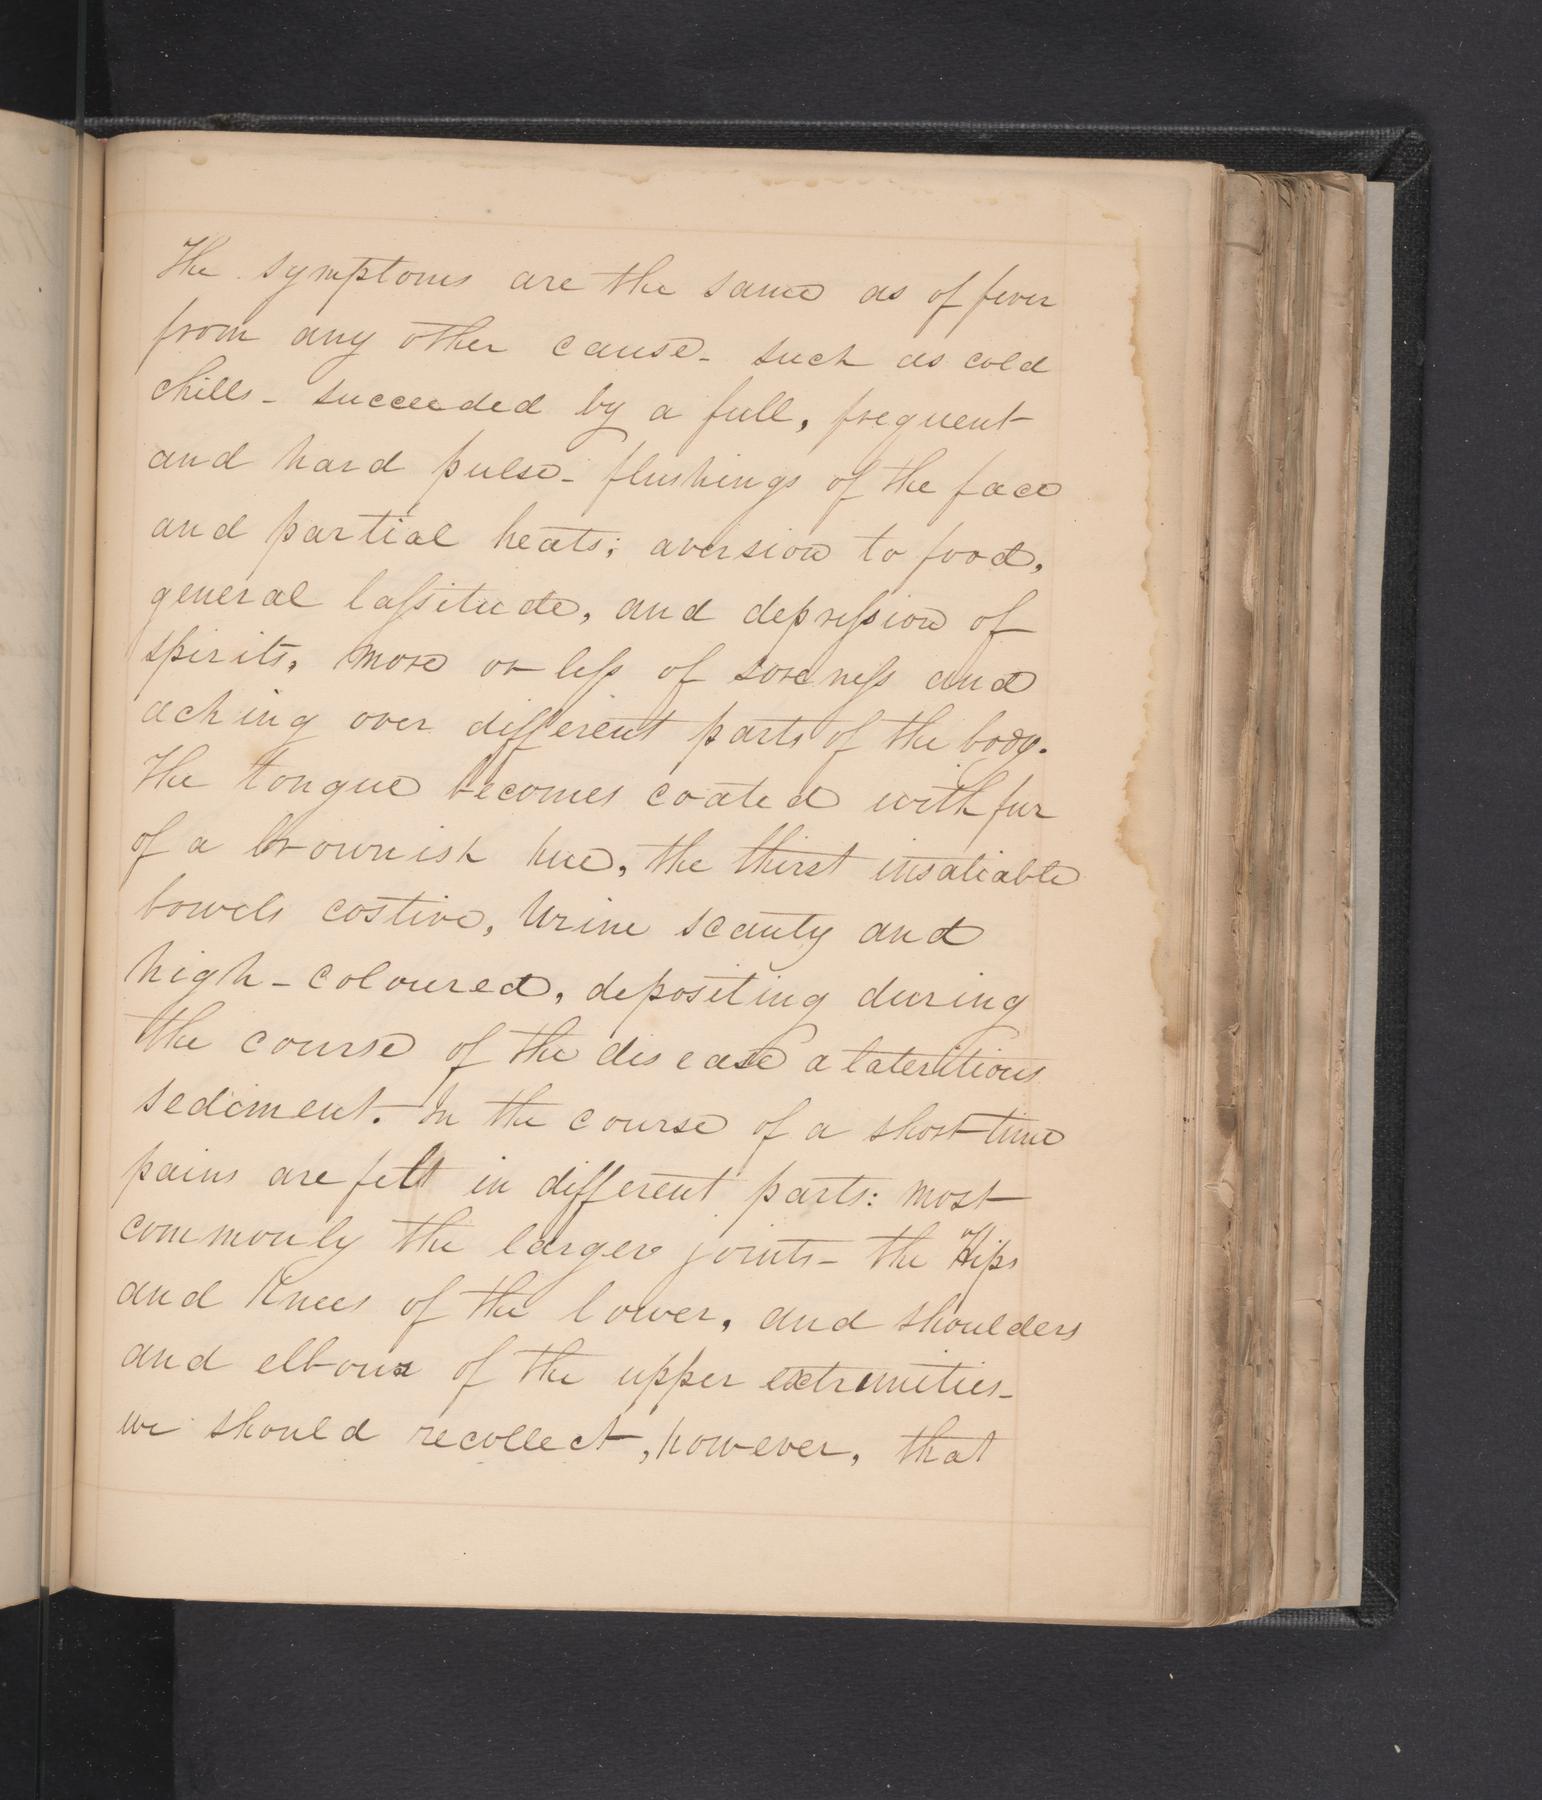 The symptoms are the same as of fever
from any other cause - such as cold
chills - succeeded by a full, frequent
and hard pulse - flushings of the face
and partial heats; aversion to food,
general lassitude, and depression of
spirits, more or less of soreness and
aching over different parts of the body.
The tongue becomes coated with fur
of a brownish hue, the thirst insatiable
bowels costive, Urine scanty and
high-coloured, depositing during
the course of the disease a lateritious
sediment. In the course of a short time
pains are felt in different parts: most
commonly the larger joints - the Hips
and Knees of the lower, and shoulders
and elbows of the upper extremities -
we should recollect, however, that